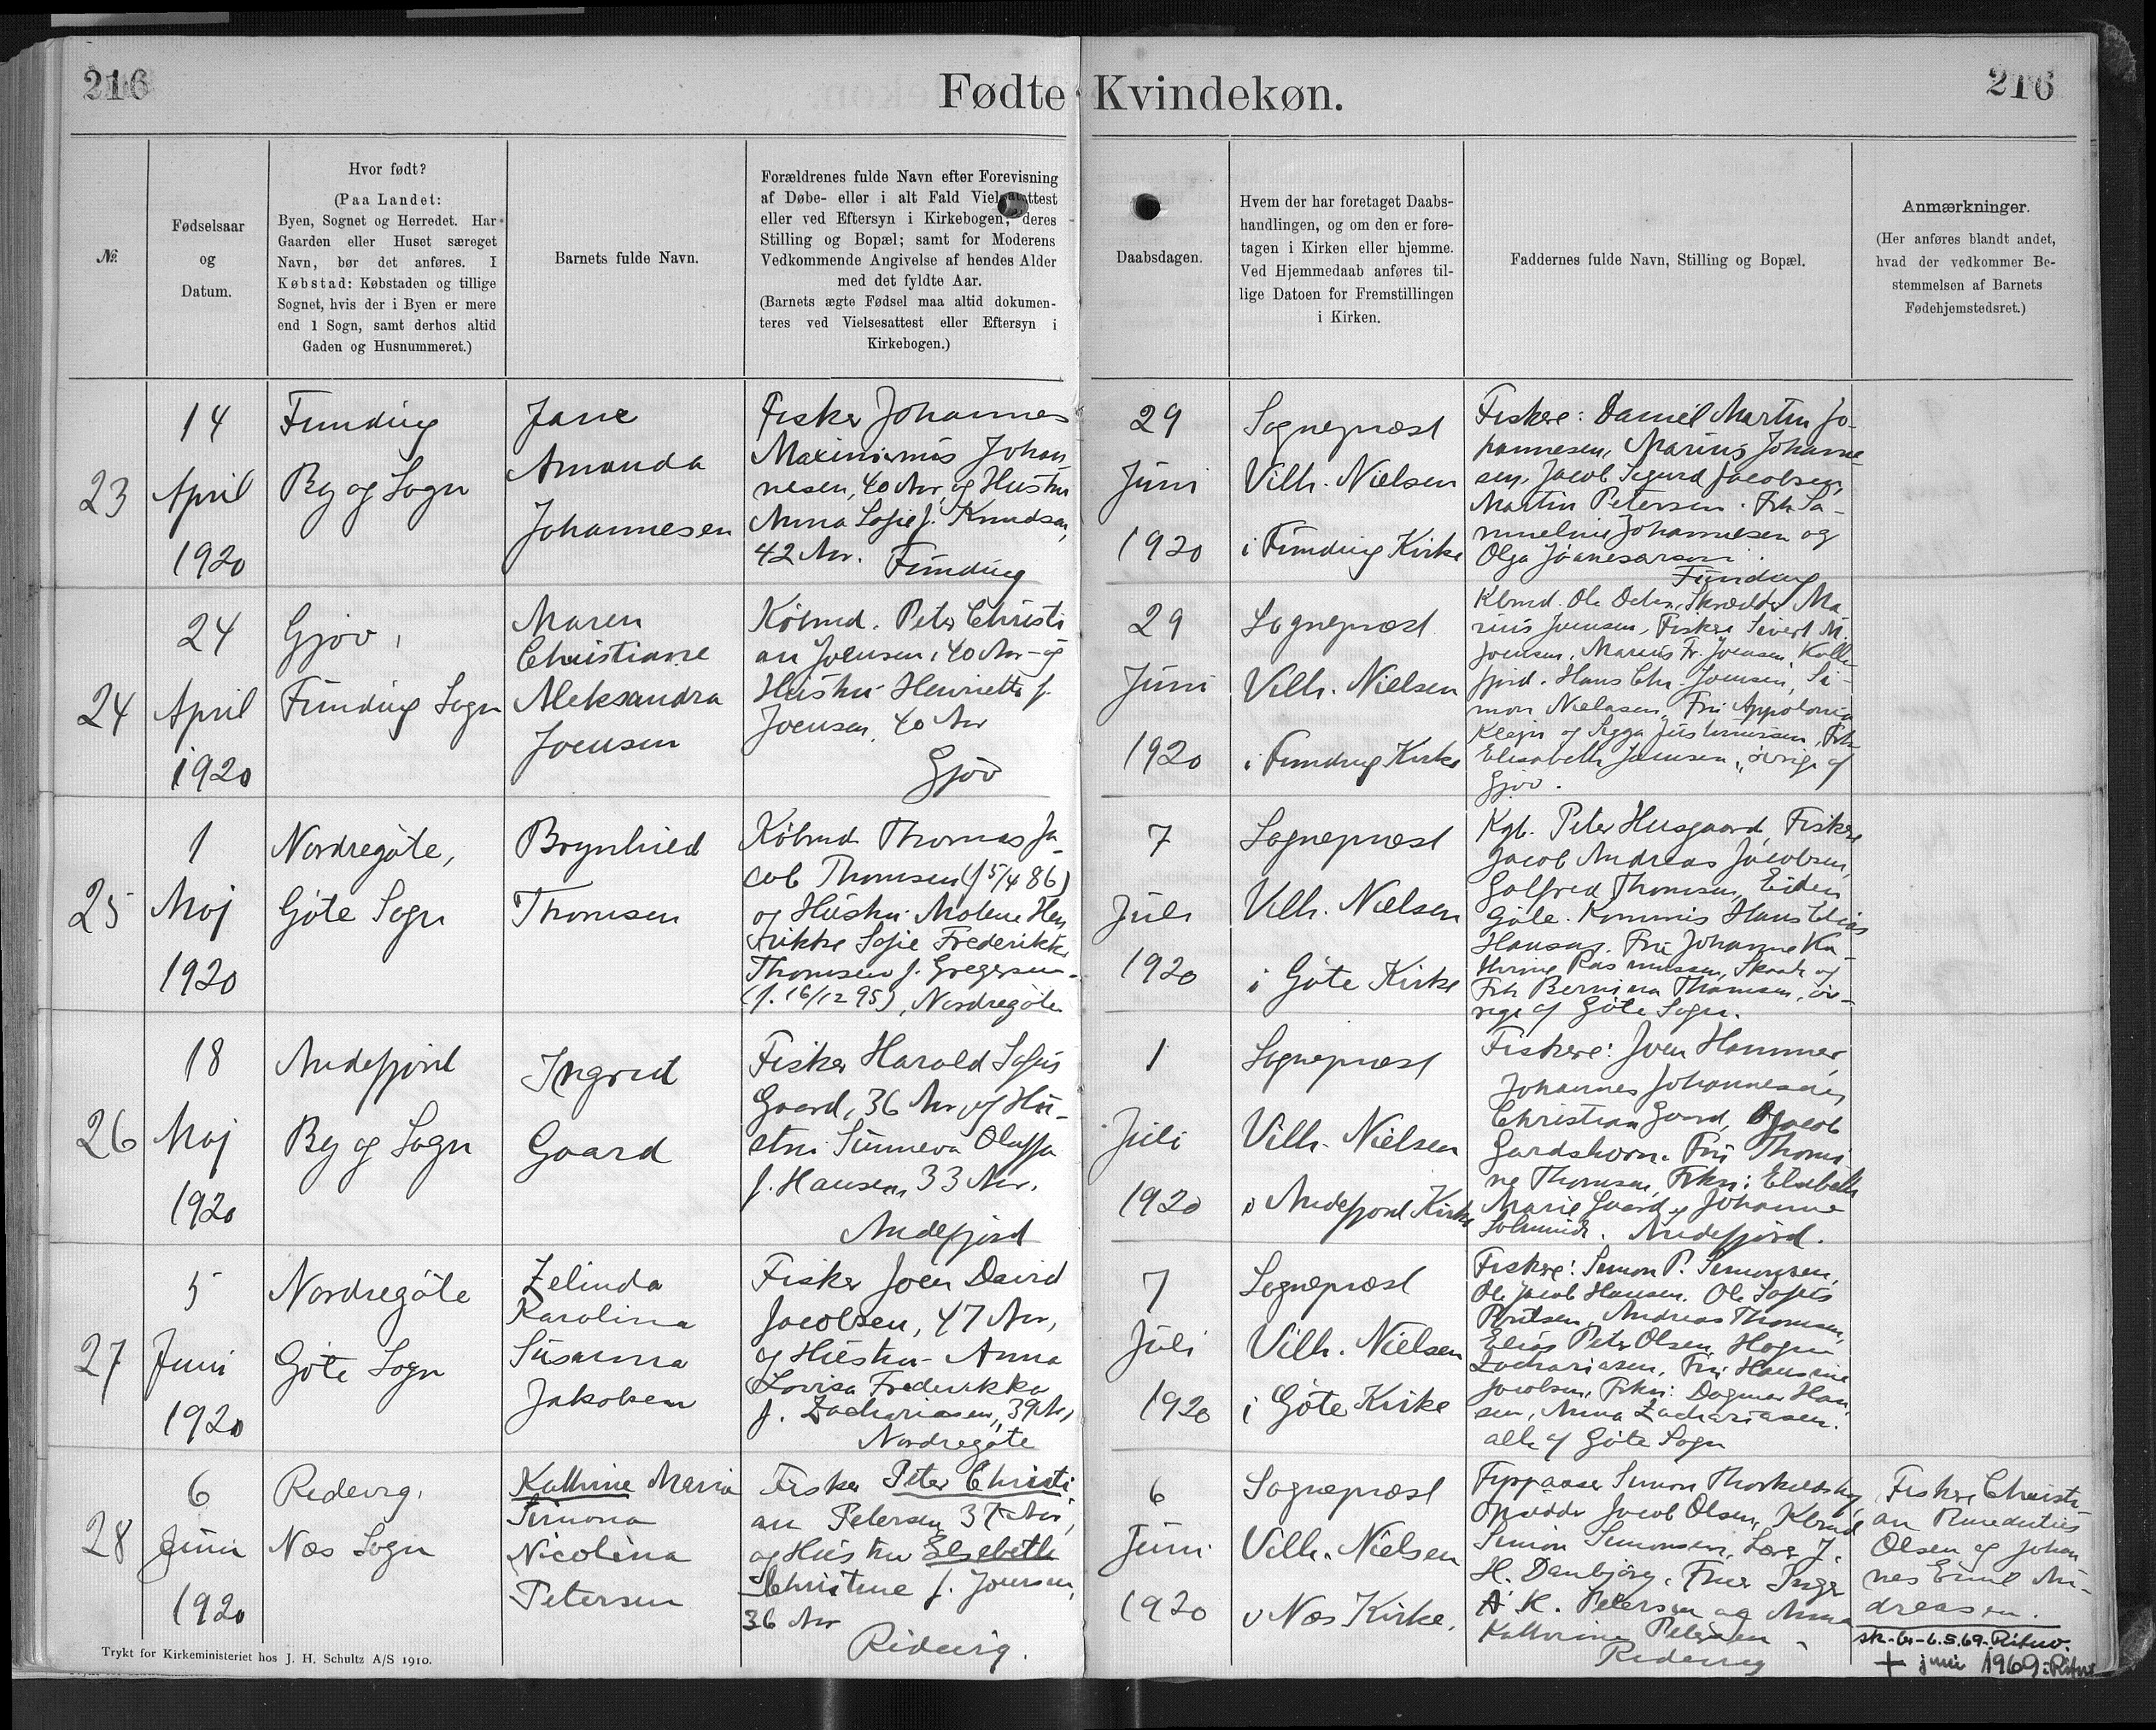 216
Fødte Kvindekøn.
216
№
Fødselsaar
og
Datum.
Hvor født?
(Paa Landet:
Byen, Sognet og Herredet. Har
Gaarden eller Huset særeget
Navn, bør det anføres. I
Købstad: Købstaden og tillige
Sognet, hvis der i Byen er mere
end 1 Sogn, samt derhos altid
Gaden og Husnummeret.)
Barnets fulde Navn.
Forældrenes fulde Navn efter Forevisning
af Døbe- eller i alt Fald Vielsesattest
eller ved Eftersyn i Kirkebogen; deres
Stilling og Bopæl; samt for Moderens
Vedkommende Angivelse af hendes Alder
med det fyldte Aar.
(Barnets ægte Fødsel maa altid dokumen-
teres ved Vielsesattest eller Eftersyn i
Kirkebogen.)
Daabsdagen.
Hvem der har foretaget Daabs-
handlingen, og om den er fore-
tagen i Kirken eller hjemme.
Ved Hjemmedaab anføres til-
lige Datoen for Fremstillingen
i Kirken.
Faddernes fulde Navn, Stilling og Bopæl.
Anmærkninger.
(Her anføres blandt andet,
hvad der vedkommer Be-
stemmelsen af Barnets
Fødehjemstedsret.)
23
14
April
1920
Funding
By og Sogn
Jane
Amanda
Johannesen
Fisker Johannes
Maximinus Johan
nesen, 40 Aar, og Hustru
Anna Sofie f. Knudsen,
42 Aar. Funding
29
Juni
1920
Sognepræst
Vilh. Nielsen
i Funding Kirke
Fiskere: Daniel Martin Jo-
hannesen, Marius Johanne
sen, Jacob Sigurd Jacobsen,
Martin Petersen. Frk Sa-
mueline Johannesen og
Olga Joanesarson.
Funding
24
24
April
1920
Gjov,
Funding Sogn
Maren
Christiane
Aleksandra
Joensen
Købmd. Peter Christi
an Joensen, 40 Aar og
Hustru Henriette f.
Joensen, 40 Aar
Gjov
29
Juni
1920
Sognepræst
Vilh. Nielsen
i Funding Kirke
Kbmd. Ole Skrædder Ma
rius Joensen, Fiskere Sivert M.
Joensen, Marius Fr. Joensen, Kolle
fjord. Hans Chr. Joensen, Si-
mon Nielasen, Fru Appolonia
Klein og Sigga Justinussen, Frk
Elisabeth Joensen, øvrige af
Gjov.
25
1
Maj
1920
Nordregøte,
Gøte Sogn
Brynhild
Thomsen
Købmd. Thomas Ja-
cob Thomsen (f 5/4 86)
og Hustru Molene Hen
rikke Sofie Frederikke
Thomsen f. Gregersen
(f. 16/12 95), Nordregøte
7
Juli
1920
Sognepræst
Vilh. Nielsen
i Gøte Kirke
Kgb. Peter Husgaard, Fiskere
Jacob Andreas Jacobsen,
Golfred Thomsen, Eiden
Gøte. Kommis Hans Elias
Hansen. Fru Johanne Ka-
thrine Rasmussen, Skaale og
Frk Bernina Thomsen, øv-
rige af Gøte Sogn.
26
18
Maj
1920
Andefjord
By og Sogn
Ingrid
Gaard
Fisker Harald Sofus
Gaard, 36 Aar og Hu-
stru Sunneva Oluffa
f. Hansen 33 Aar.
Andefjord
1
Juli
1920
Sognepræst
Vilh. Nielsen
i Andefjord Kirke
Fiskere: Joen Hammer,
Johannes Johannesen,
Christian Gaard, Jacob
Gardshorn. Fru Thomi
ne Thomsen, Frkn: Elsebeth
Marie Gaard og Johanne
Andefjord.
27
5
Juni
1920
Nordregøte
Gøte Sogn
Zelinda
Karolina
Susanna
Jakobsen
Fisker Joen David
Jacobsen, 47 Aar,
og Hustru Anna
Lovisa Frederikka
f. Zachariasen, 39 Aar
Nordregøte
7
Juli
1920
Sognepræst
Vilh. Nielsen
i Gøte Kirke
Fiskere: Simon P. Simonsen,
Ole Jacob Hansen, Ole Sofus
Poulsen, Andreas Thomsen,
Elias Peter Olsen, Hogni
Zachariasen, Fru Hansine
Jacobsen, Frkn: Dagmar Han
sen, Anna Zachariasen.
alle af Gøte Sogn
28
6
Juni
1920
Redevig,
Næs Sogn
Kathrine Maria
Simona
Nicolina
Petersen
Fisker Peter Christi
an Petersen 37 Aar,
og Hustru Elsebeth
Christine f. Joensen,
36 Aar
Ridevig.
6
Juni
1920
Sognepræst
Vilh. Nielsen
i Næs Kirke.
Fyrpasser Simon Thorkildshøj,
Opsidder Jacob Olsen, Kbmd
Simon Simonsen, Lærer J.
H. Danbjørg, Fruer Inger
A. K. Petersen og Anna
Kathrine Petersen
Redevig
Fiskere Christi-
an Benedictus
Olsen og Johan
nes Emil An-
dreasen.
6.5.69.
+ juni 1969
Trykt for Kirkeministeriet hos J. H. Schultz A/S 1910.